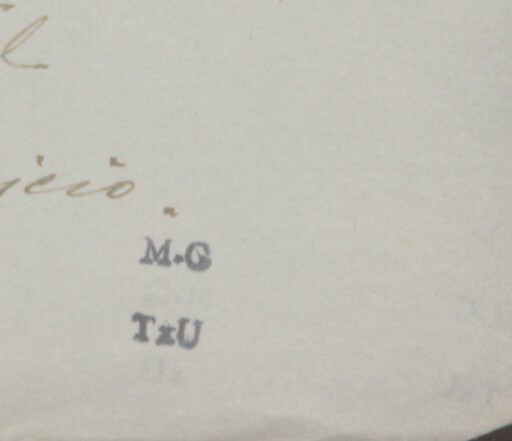 l
icio.
M.G
TxU